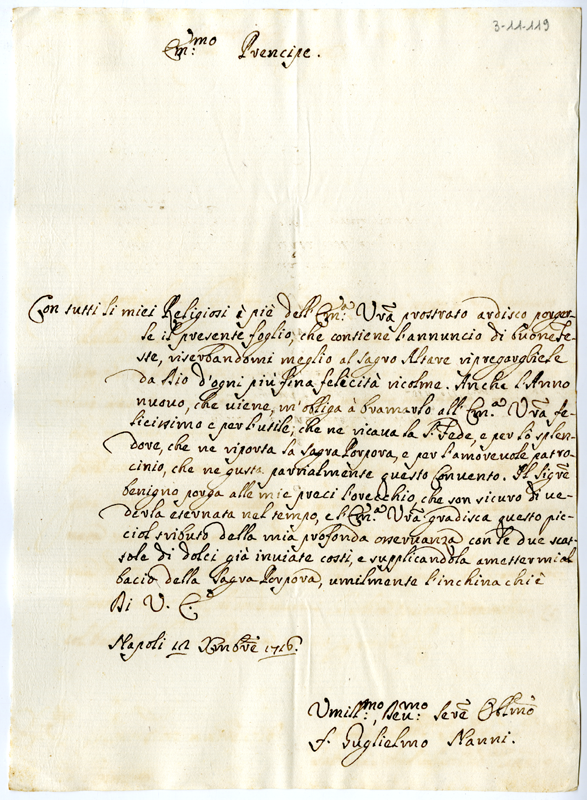 3-11-119
Em:mo Prencipe.
Con tutti li miei Religiosi à piè dell'Em:a Vrã prostrato ardisco porger-
le il presente foglio, che contiene l'annuncio di buone Fe-
ste, riserbandomi meglio al sagro Altare ripregargliele
da Dio d'ogni più fina felicità ricolme. Anche l'Anno
nuovo, che viene, m'obliga à bramarlo all'Em:a Vrã fe-
licissimo e per l'utile, che ne ricava la S. Sede, e per lo splen-
dore, che ne riporta la Sagra Porpora, e per l'amorevole patro-
cinio, che ne gusta parzialmente questo Convento. Il Sigre
benigno porga alle mie preci l'orecchio, che son sicuro di ve-
derla eternata nel tempo, e l'Em:a Vrã gradisca questo pic-
ciol tributo della mia profonda osservanza con le due scat-
tole di dolci già inviate costì, e supplicandola amettermi al
bacio della Sagra Porpora, umilmente l'inchina chi è
Di V. E.
Napoli 12 Xmbre 1716.
Umill:mo, Dev:mo Serv.e Obl:mo
f. Guglielmo Nanni.